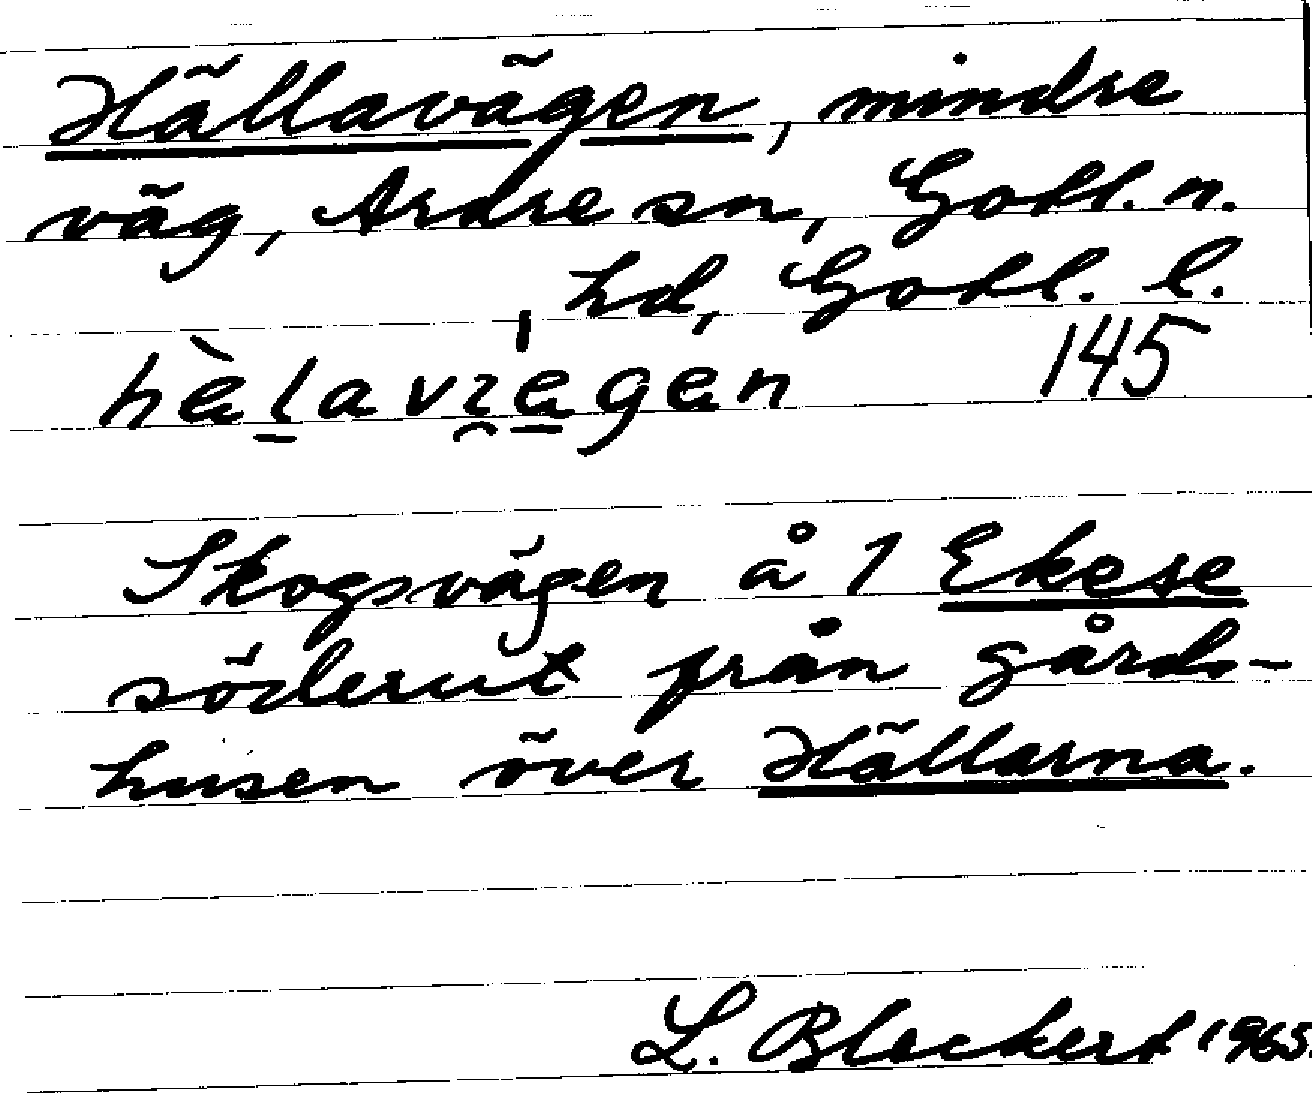 Hällavägen, mindre
väg, Ardre sn, Gotl. n.
hd, Gotl. l.
145
Skogsvägen å 1 Ekese
söderut från gårds-
husen över Hällarna.
L. Bleckert 1965.